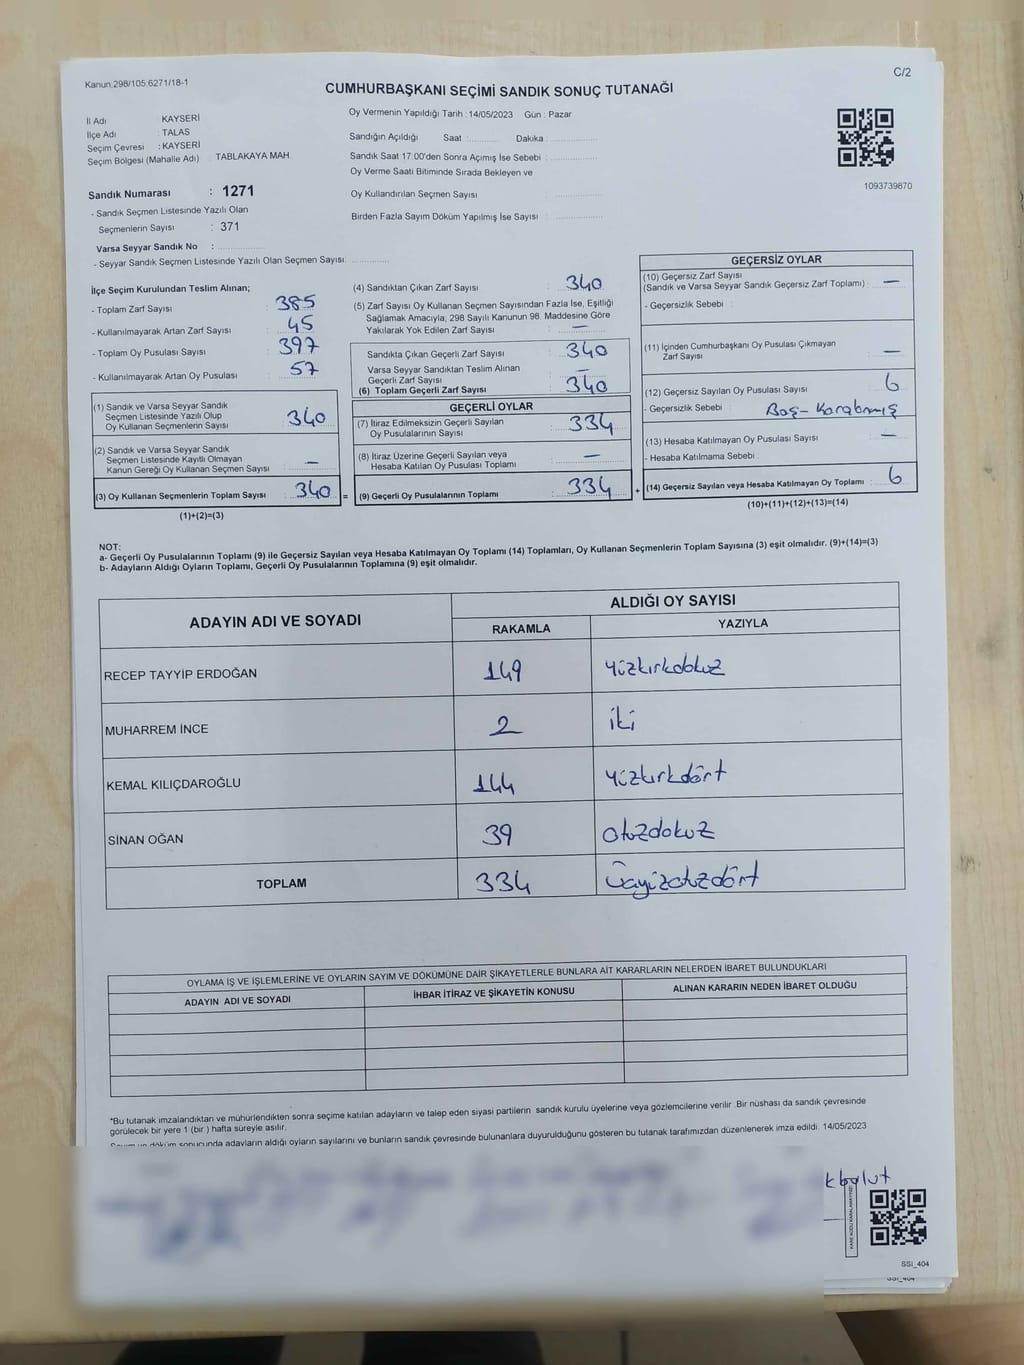 Kanun:298/105 6271/18-1
C/2
CUMHURBAŞKANI SEÇİMİ SANDIK SONUÇ TUTANAĞI
İl Adı : KAYSERİ
İlçe Adı : TALAS
Seçim Çevresi : KAYSERİ
Seçim Bölgesi (Mahalle Adı) : TABLAKAYA MAH.
Sandık Numarası : 1271
- Sandık Seçmen Listesinde Yazılı Olan
Seçmenlerin Sayısı : 371
Varsa Seyyar Sandık No :
- Seyyar Sandık Seçmen Listesinde Yazılı Olan Seçmen Sayısı:
Oy Vermenin Yapıldığı Tarih : 14/05/2023 Gün : Pazar
Sandığın Açıldığı Saat : Dakika :
Sandık Saat 17:00'den Sonra Açımış İse Sebebi :
Oy Verme Saati Bitiminde Sırada Bekleyen ve
Oy Kullandırılan Seçmen Sayısı :
Birden Fazla Sayım Döküm Yapılmış İse Sayısı :
1093739870
İlçe Seçim Kurulundan Teslim Alınan;
- Toplam Zarf Sayısı : 385
- Kullanılmayarak Artan Zarf Sayısı : 45
- Toplam Oy Pusulası Sayısı : 397
- Kullanılmayarak Artan Oy Pusulası : 57
(1) Sandık ve Varsa Seyyar Sandık
Seçmen Listesinde Yazılı Olup
Oy Kullanan Seçmenlerin Sayısı : 340
(2) Sandık ve Varsa Seyyar Sandık
Seçmen Listesinde Kayıtlı Olmayan
Kanun Gereği Oy Kullanan Seçmen Sayısı : —
(3) Oy Kullanan Seçmenlerin Toplam Sayısı : 340 =
(1)+(2)=(3)
(4) Sandıktan Çıkan Zarf Sayısı : 340
(5) Zarf Sayısı Oy Kullanan Seçmen Sayısından Fazla İse, Eşitliği
Sağlamak Amacıyla; 298 Sayılı Kanunun 98. Maddesine Göre
Yakılarak Yok Edilen Zarf Sayısı : —
Sandıkta Çıkan Geçerli Zarf Sayısı : 340
Varsa Seyyar Sandıktan Teslim Alınan
Geçerli Zarf Sayısı : —
(6) Toplam Geçerli Zarf Sayısı : 340
GEÇERLİ OYLAR
(7) İtiraz Edilmeksizin Geçerli Sayılan
Oy Pusulalarının Sayısı : 334
(8) İtiraz Üzerine Geçerli Sayılan veya
Hesaba Katılan Oy Pusulası Toplamı : —
(9) Geçerli Oy Pusulalarının Toplamı : 334 +
GEÇERSİZ OYLAR
(10) Geçersiz Zarf Sayısı
(Sandık ve Varsa Seyyar Sandık Geçersiz Zarf Toplamı) : —
- Geçersizlik Sebebi :
(11) İçinden Cumhurbaşkanı Oy Pusulası Çıkmayan
Zarf Sayısı : —
(12) Geçersiz Sayılan Oy Pusulası Sayısı : 6
- Geçersizlik Sebebi : Boş-Karalanmış
(13) Hesaba Katılmayan Oy Pusulası Sayısı : —
- Hesaba Katılmama Sebebi :
(14) Geçersiz Sayılan veya Hesaba Katılmayan Oy Toplamı : 6
(10)+(11)+(12)+(13)=(14)
NOT:
a- Geçerli Oy Pusulalarının Toplamı (9) ile Geçersiz Sayılan veya Hesaba Katılmayan Oy Toplamı (14) Toplamları, Oy Kullanan Seçmenlerin Toplam Sayısına (3) eşit olmalıdır. (9)+(14)=(3)
b- Adayların Aldığı Oyların Toplamı, Geçerli Oy Pusulalarının Toplamına (9) eşit olmalıdır.
ADAYIN ADI VE SOYADI
ALDIĞI OY SAYISI
RAKAMLA YAZIYLA
RECEP TAYYİP ERDOĞAN 149 yüzkırkdokuz
MUHARREM İNCE 2 iki
KEMAL KILIÇDAROĞLU 144 yüzkırkdört
SİNAN OĞAN 39 otuzdokuz
TOPLAM 334 üçyüzotuzdört
OYLAMA İŞ VE İŞLEMLERİNE VE OYLARIN SAYIM VE DÖKÜMÜNE DAİR ŞİKAYETLERLE BUNLARA AİT KARARLARIN NELERDEN İBARET BULUNDUKLARI
ADAYIN ADI VE SOYADI İHBAR İTİRAZ VE ŞİKAYETİN KONUSU ALINAN KARARIN NEDEN İBARET OLDUĞU
*Bu tutanak imzalandıktan ve mühürlendikten sonra seçime katılan adayların ve talep eden siyasi partilerin sandık kurulu üyelerine veya gözlemcilerine verilir .Bir nüshası da sandık çevresinde
görülecek bir yere 1 (bir ) hafta süreyle asılır.
döküm sonucunda adayların aldığı oyların sayılarını ve bunların sandık çevresinde bulunanlara duyurulduğunu gösteren bu tutanak tarafımızdan düzenlenerek imza edildi. 14/05/2023
kbulut
SSI_404
SSI_404